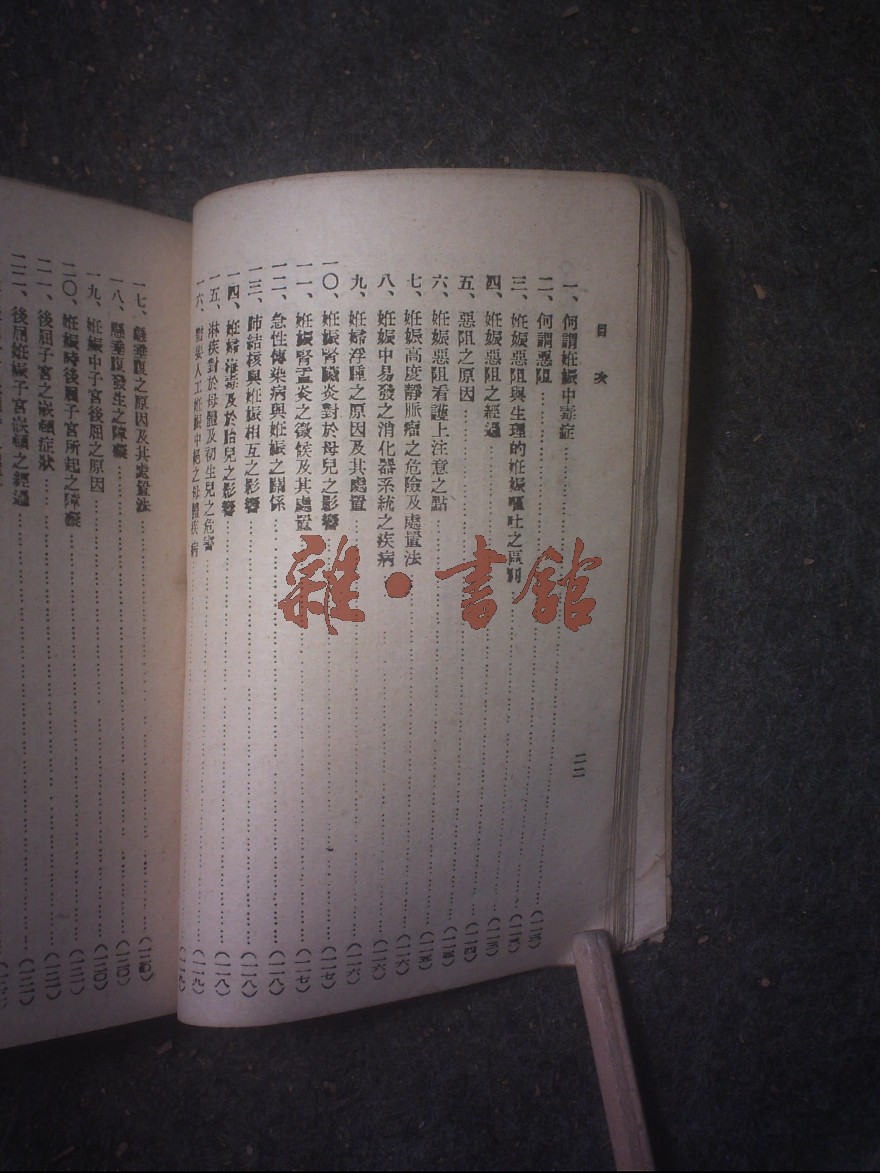 目次
二二
一、何謂妊娠中毒症
二、何謂惡阻
三、妊娠惡阻與生理的妊娠嘔吐之區別
四、妊娠惡阻之經過
五、惡阻之原因
六、妊娠惡阻看護上注意之點
七、妊娠高度靜脈瘤之危險及處置法
八、妊娠中易發之消化器系統之疾病
九、妊婦浮腫之原因及其處置
一〇、妊娠腎臟炎對於母兒之影響
一一、妊娠腎盂炎之徵候及其處置
一二、急性傳染病與妊娠之關係
一三、肺結核與妊娠相互之影響
一四、妊婦梅毒及於胎兒之影響
一五、淋疾對於母體及初生兒之危害
一六、需要人工妊娠中絕之母體疾病
一七、懸垂腹之原因及其處置法
一八、懸垂腹發生之障礙
一九、妊娠中子宮後屈之原因
二〇、妊娠時後屈子宮所起之障礙
二一、後屈子宮之嵌頓症狀
二二、後屈妊娠子宮嵌頓之經過
雜·書館